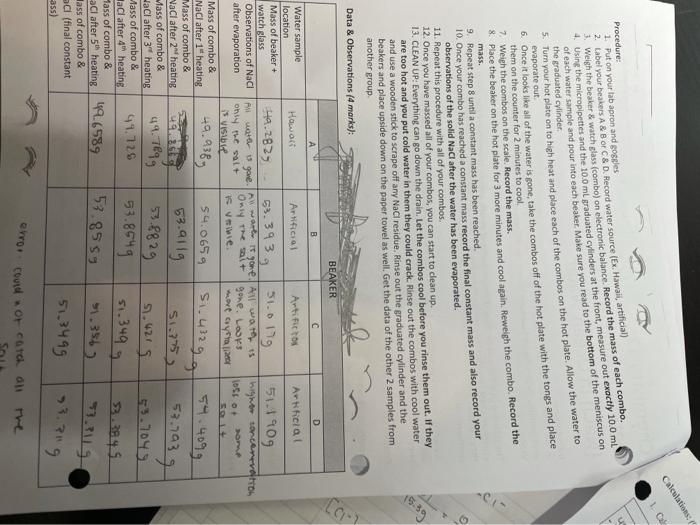 Calculations:
Procedure:
1. Put on your lab apron and goggles
2. Label your beakers A & B or C & D. Record water source (Ex. Hawaii, artificial)
3. Weigh the beaker & watch glass (combo) on electronic balance. Record the mass of each combo.
4. Using the micropipettes and the 10.0 mL graduated cylinders at the front, measure out exactly 10.0 mL
of each water sample and pour into each beaker. Make sure you read to the bottom of the meniscus on
the graduated cylinder.
5. Turn your hot plate on to high heat and place each of the combos on the hot plate. Allow the water to
evaporate out.
6. Once it looks like all of the water is gone, take the combos off of the hot plate with the tongs and place
them on the counter for 2 minutes to cool.
7. Weigh the combos on the scale. Record the mass.
8. Place the beaker on the hot plate for 3 more minutes and cool again. Reweigh the combo. Record the
mass.
9. Repeat step 8 until a constant mass has been reached.
10. Once your combo has reached a constant mass record the final constant mass and also record your
observations of the solid NaCl after the water has been evaporated.
11. Repeat this procedure with all of your combos.
12. Once you have massed all of your combos, you can start to clean up.
13. CLEAN UP: Everything can go down the drain. Let the combos cool before you rinse them out. If they
are too hot and you put cold water in them they could crack. Rinse out the combos with cool water
and use a wooden stick to scrape off any NaCl residue. Rinse out the graduated cylinder and the
beakers and place upside down on the paper towel as well. Get the data of the other 2 samples from
another group.
Data & Observations (4 marks):
BEAKER
A B C D
Water sample location Hawaii Artificial Artificial Artificial
Mass of beaker + watch glass 53.393g 51.017g 51.190g
Observations of NaCl after evaporation All water is gone. only the salt is visible All water is gone. Only the salt is visible. All water is gone. Looks more crystalized higher concentration loss of some salt
Mass of combo & NaCl after 1st heating 49.938g 54.065g 51.432g 54.409g
Mass of combo & NaCl after 2nd heating 53.911g 51.375g 53.793g
Mass of combo & NaCl after 3rd heating 49.789g 53.802g 51.421g 53.704g
Mass of combo & NaCl after 4th heating 49.726 53.854g 51.349g 53.384g
Mass of combo & NaCl after 5th heating 49.658g 53.855g 51.336g 53.311g
Mass of combo & NaCl (final constant mass) 51.349g 53.311g
error: could not get all the
salt